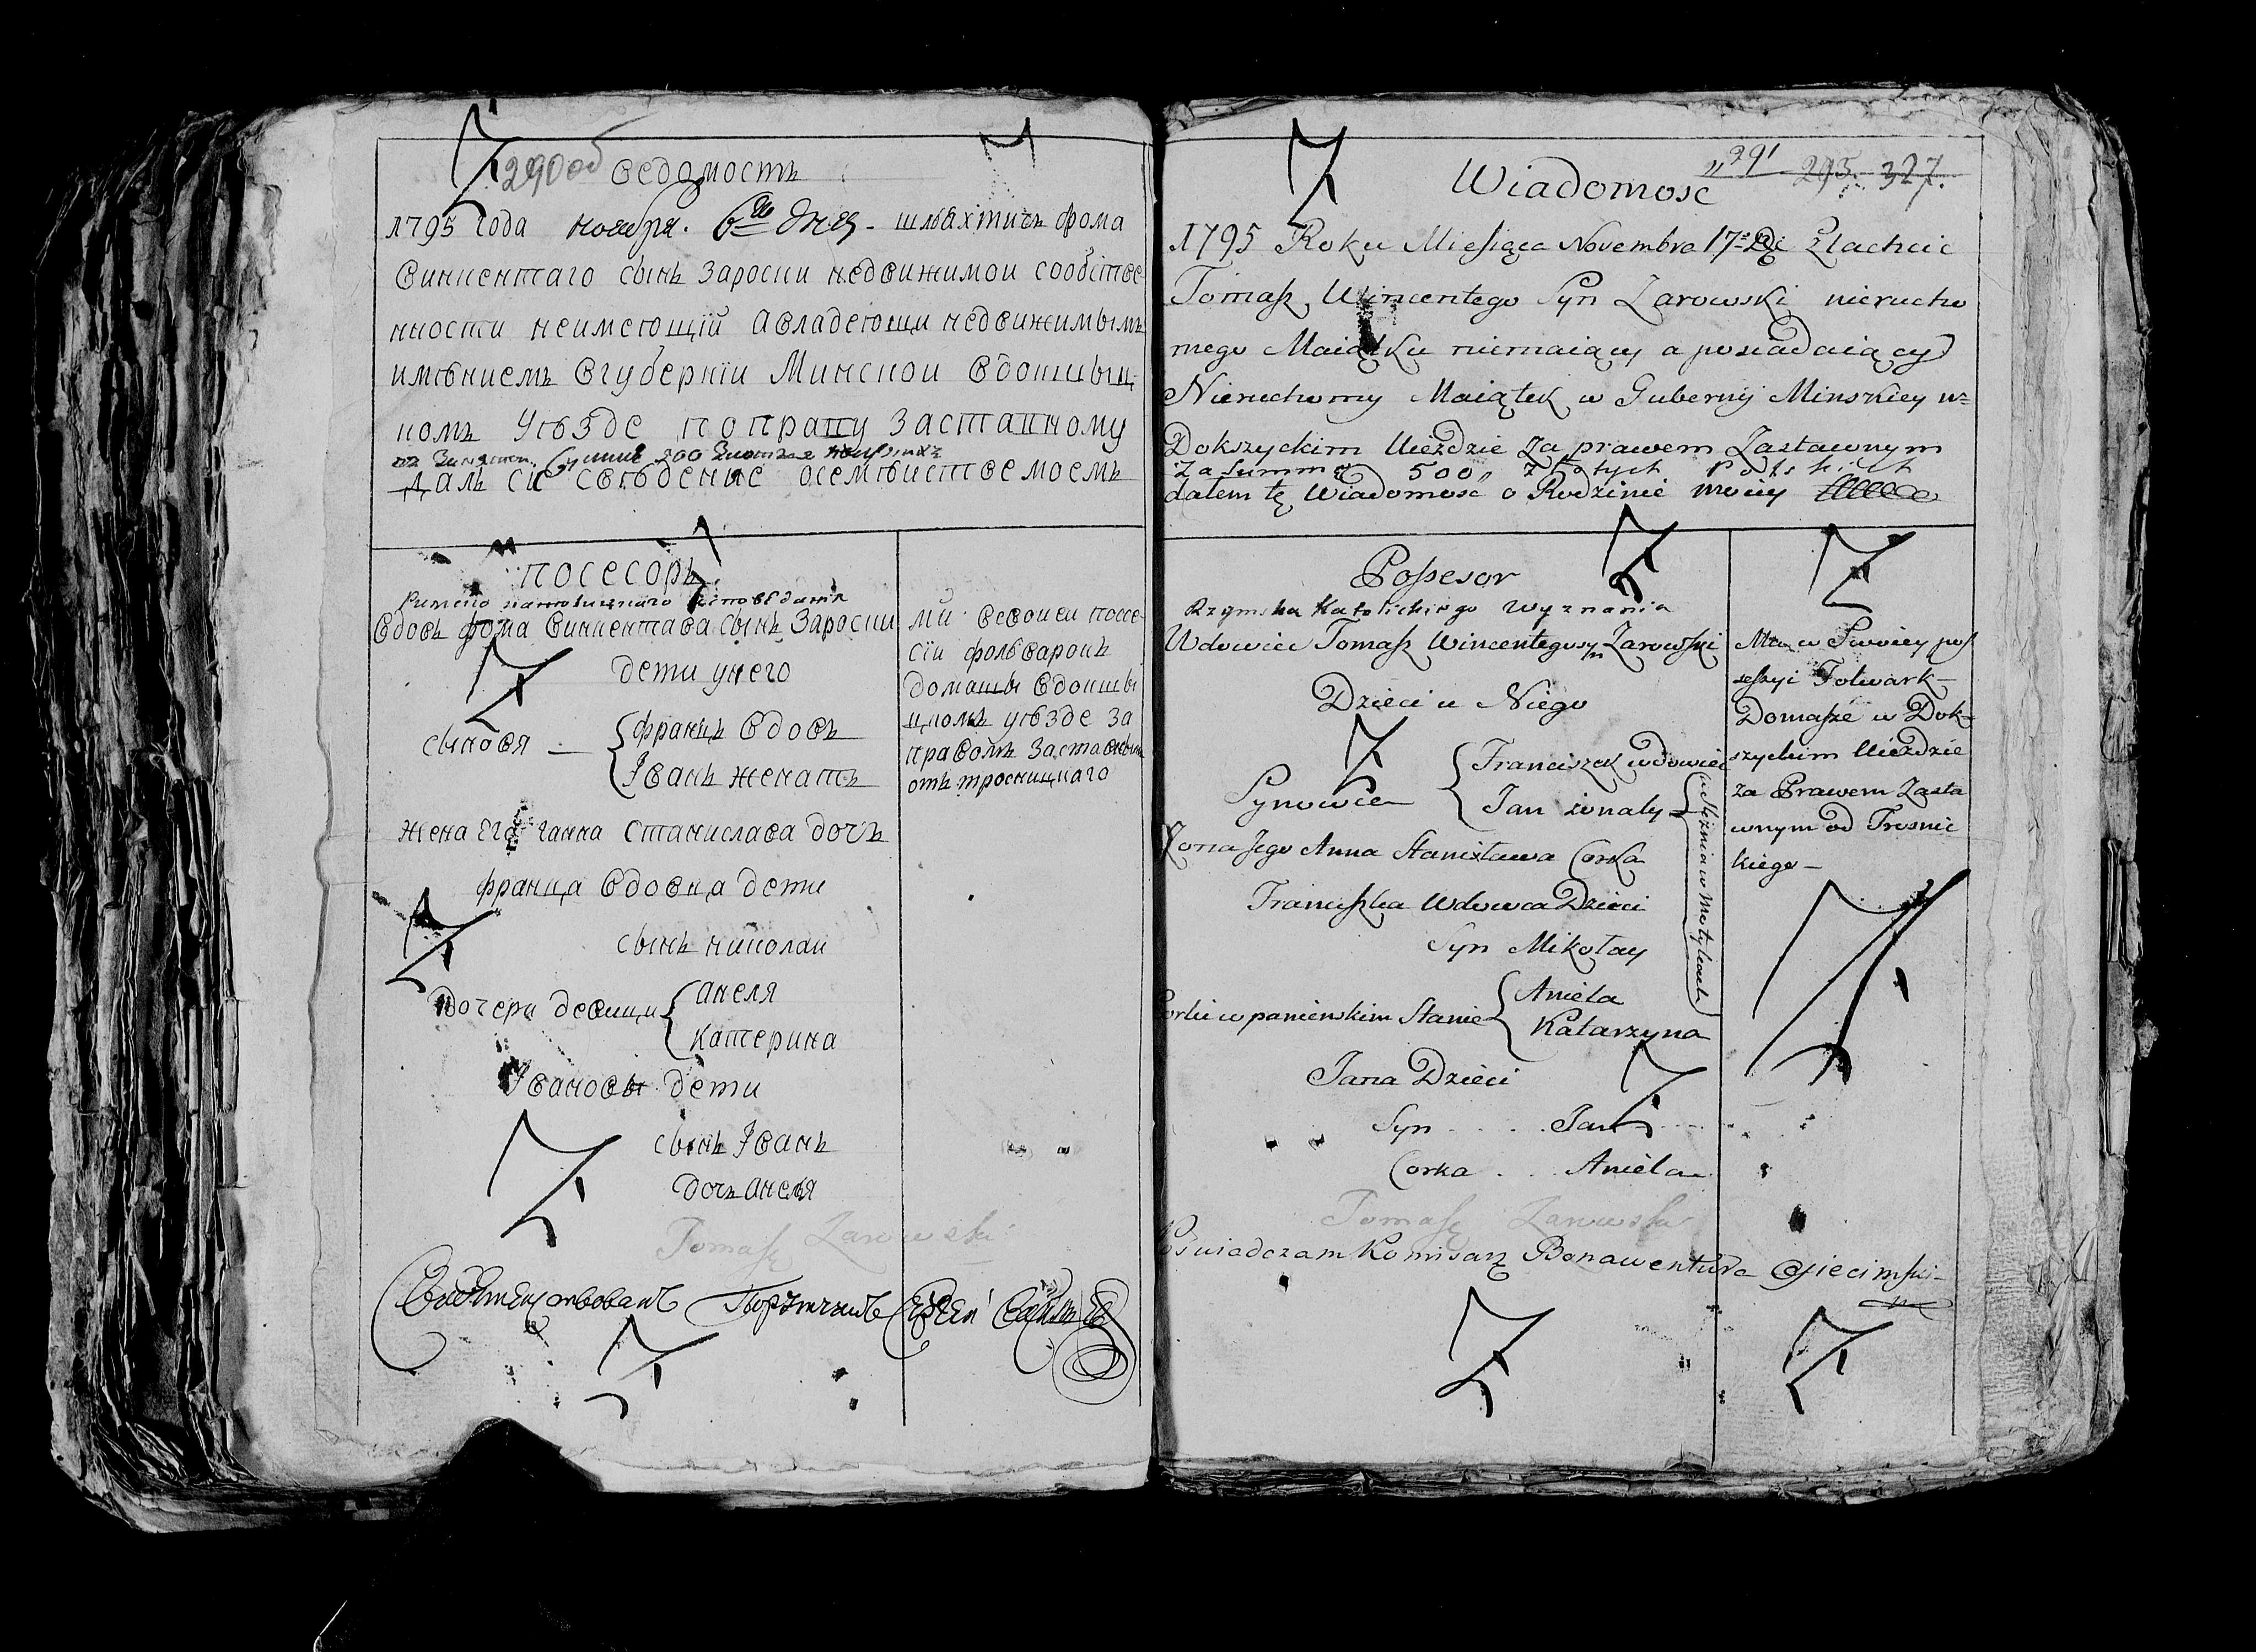 290об
Ведомость
1795 года ноября. 6го дня - шлѣхтичъ фома
винцентаго сынъ Зароски недвижимои сообстве
нности неимеющїй авладеющи недвижимымъ
имѣниемъ вгубернїи Минскои вдокшыц
комъ уѣзде поправу заставному
далъ сїе свѣдение осемѣистве моемъ
посесоръ
Римско католицкаго исповѣдания
вдовъ фома винцентава сынъ Зароски
дети унего
сыновя — францъ вдовъ
Іванъ женатъ
жена Его ганна станислава дочъ
франца вдовца дети
сынъ николаи
дочери девицы анеля
катерина
Івановы дети
сынъ Іванъ
дочь анеля
Tomasz Zarowski
Свидѣтельствовалъ Порутчикъ
мы всвоеи посе
сїи фольварокъ
домашы вдокшы
цкомъ уѣзде за
правомъ заставным
отъ тросницкаго
"291 295. 327.
Wiadomosc
1795 Roku Miesiąca Novembra 17 Szlachcic
Tomasz Wincentego Syn Zarowski nierucho
mego Maiątku niemaiący a posiadaiący
Nieruchomy Maiątek w Gubernij Minskiey w=
Dokszyckim Uieździe Za prawem Zastawnym
Za Summę 500 złotych Polskich
dałem tę Wiadomosc o Rodzinie moiey
Possesor
Rzymska Katolickiego Wyznania
Wdowiec Tomasz Wincentego syn Zarowski
Dzieci u Niego
Synowie Franciszek wdowiec
Jan żonaty
Zona Jego Anna Stanisława Corka
Franciszka Wdowca Dzieci
Syn Mikołay
Corki w panienskim Stanie Aniela
Katarzyna
Jana Dzieci
Syn . . . . Jan
Corka . . . Aniela
Tomasz Zarowski
Poswiadczam Komisarz Bonawentura Osiecimski
Ma w Swoiey pos
sessyi Folwark
Domasze w Dok=
szyckim Uieździe
Za Prawem Zasta
wnym od Trosnic
kiego —